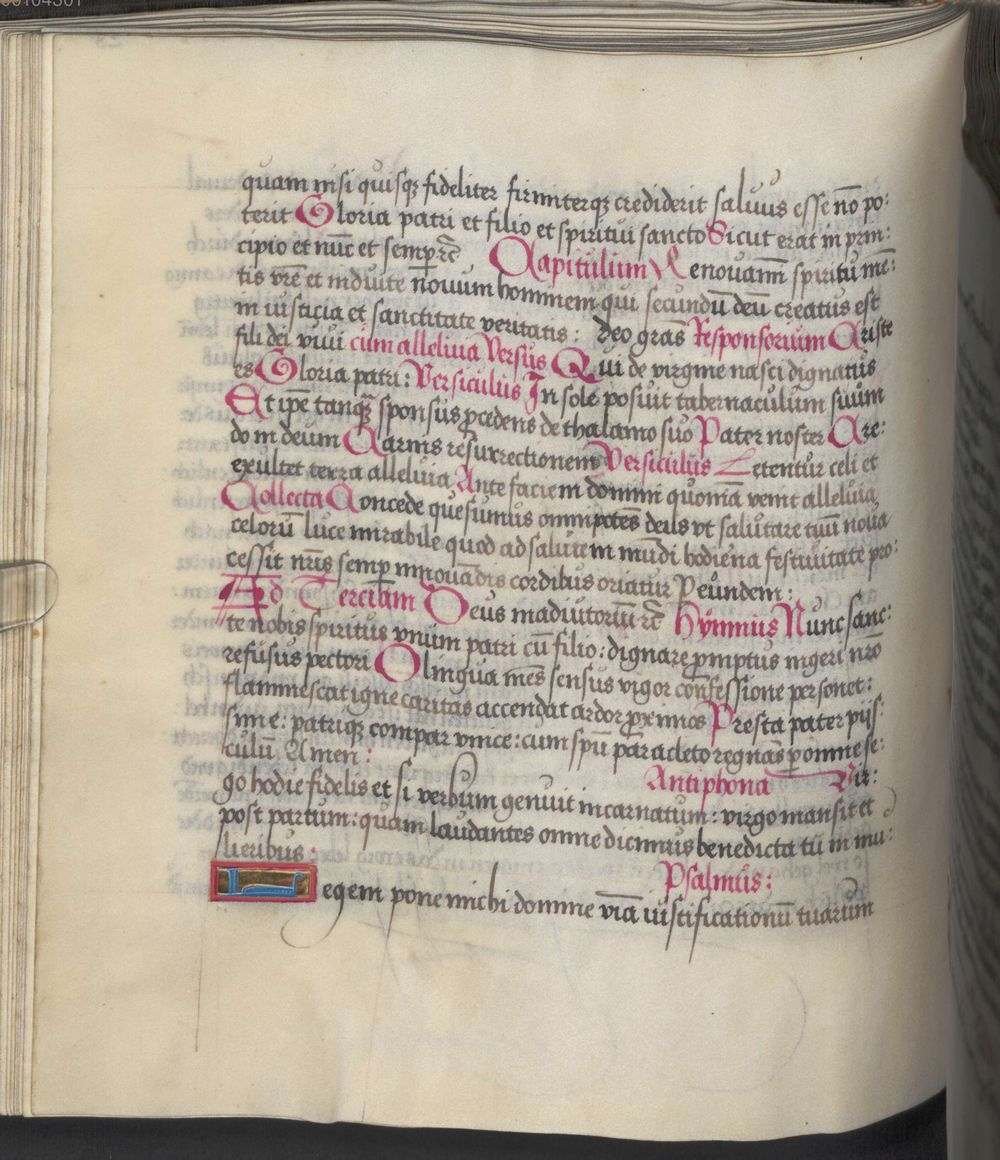 00104301
quam nisi quisqꝫ fideliter firmiterqꝫ crediderit saluus esse nō po:
terit Gloria patri et filio et spiritui sancto Sicut erat in prin:
cipio et nūc et semp̱ rc̄ Capitulum Renouamī spiritu mē:
tis vrē et induite nouum hominem qui secundū deū creatus est
in iusticia et sanctitate veritatis: deo gras̄ Responsorium Criste
fili dei viui cum alleluia Versus Qui de virgine nasci dignatus
es Gloria patri: Versiculus In sole posuit tabernaculum suum
Et ipē tanqꝫ sponsus p̱cedens de thalamo suo Pater noster Cre:
do in deum Carnis resurrectionem Versiculus Letentur celi et
exultet terra alleluia Ante faciem domini quoniā venit alleluia
Collecta Concede quesumus omnipotēs deus vt salutare tuū noua
celorū luce mirabile quod ad salutem mūdi hodierna festiuitate pro:
cessit nrīs semp̱ innouādis cordibus oriatur Peundem:
Ad Terciam Deus in adiutoriū rc̄ Hymnus Nunc sanc:
te nobis spiritus vnum patri cū filio: dignare p̱mptus ingeri nrō
refusus pectori Os lingua mēs sensus vigor confessione personet:
flammescat igne caritas accendat ardor p̱ximos Presta pater piis:
sime: patriqꝫ compar vnice: cum spū paracleto regnās p̱ omne se:
culū Amen:
Antiphona Vir:
go hodie fidelis et si verbum genuit incarnatum: virgo mansit et
post partum: quam laudantes omne dicimus benedicta tū in mu:
lieribus:
Psalmus:
Legem pone michi domine viā iustificationū tuarum